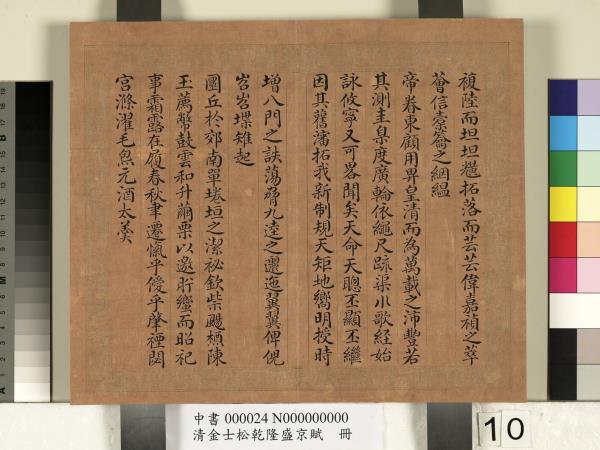 複陸而坦坦糙拓落而芸芸偉嘉禎之萃
薈信橐籥之絪縕
帝眷東顧用畀皇清而為萬載之沛豐若
其測圭臬度廣輪依繩尺疏渠水歌經始
詠攸寧又可畧聞矣天命天聰丕顯丕繼
因其舊瀋拓我新制規天矩地嚮明授時
增八門之訣蕩脅九逵之邐迤翼翼俾倪
岧岧堞雉起
圜丘於郊南單埢垣之潔祕欽柴颺槱陳
玉薦幣鼓雲和升繭栗以邀肸蠁而昭祀
事霜露在履春秋聿遷愾乎僾乎肇禋閟
宮滌濯毛炰元酒太羹
中書 000024 N000000000
清金士松乾隆盛京賦 冊
10